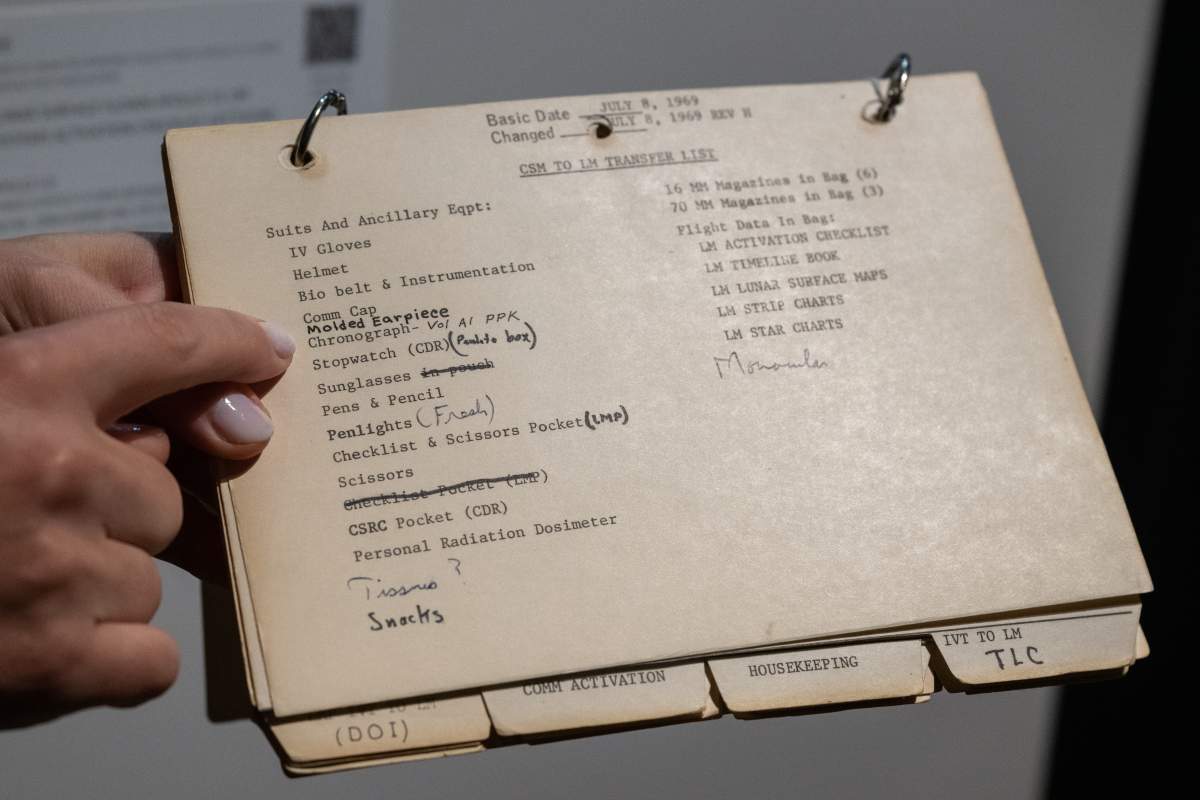 Basic Date JULY 8, 1969
Changed JULY 8, 1969 REV H
CSM TO LM TRANSFER LIST
Suits And Ancillary Eqpt:
IV Gloves
Helmet
Bio belt & Instrumentation
Comm Cap
Molded Earpiece
Chronograph- Vol A1 PPK
Stopwatch (CDR) (Penlite box)
Sunglasses in pouch
Pens & Pencil
Penlights (Fresh)
Checklist & Scissors Pocket (LMP)
Scissors
Checklist Pocket (LMP)
CSRC Pocket (CDR)
Personal Radiation Dosimeter
Tissues ?
Snacks
16 MM Magazines in Bag (6)
70 MM Magazines in Bag (3)
Flight Data In Bag:
LM ACTIVATION CHECKLIST
LM TIMELINE BOOK
LM LUNAR SURFACE MAPS
LM STRIP CHARTS
LM STAR CHARTS
Monocular
IVT TO LM
(DOI)
COMM ACTIVATION
HOUSEKEEPING
IVT TO LM
TLC